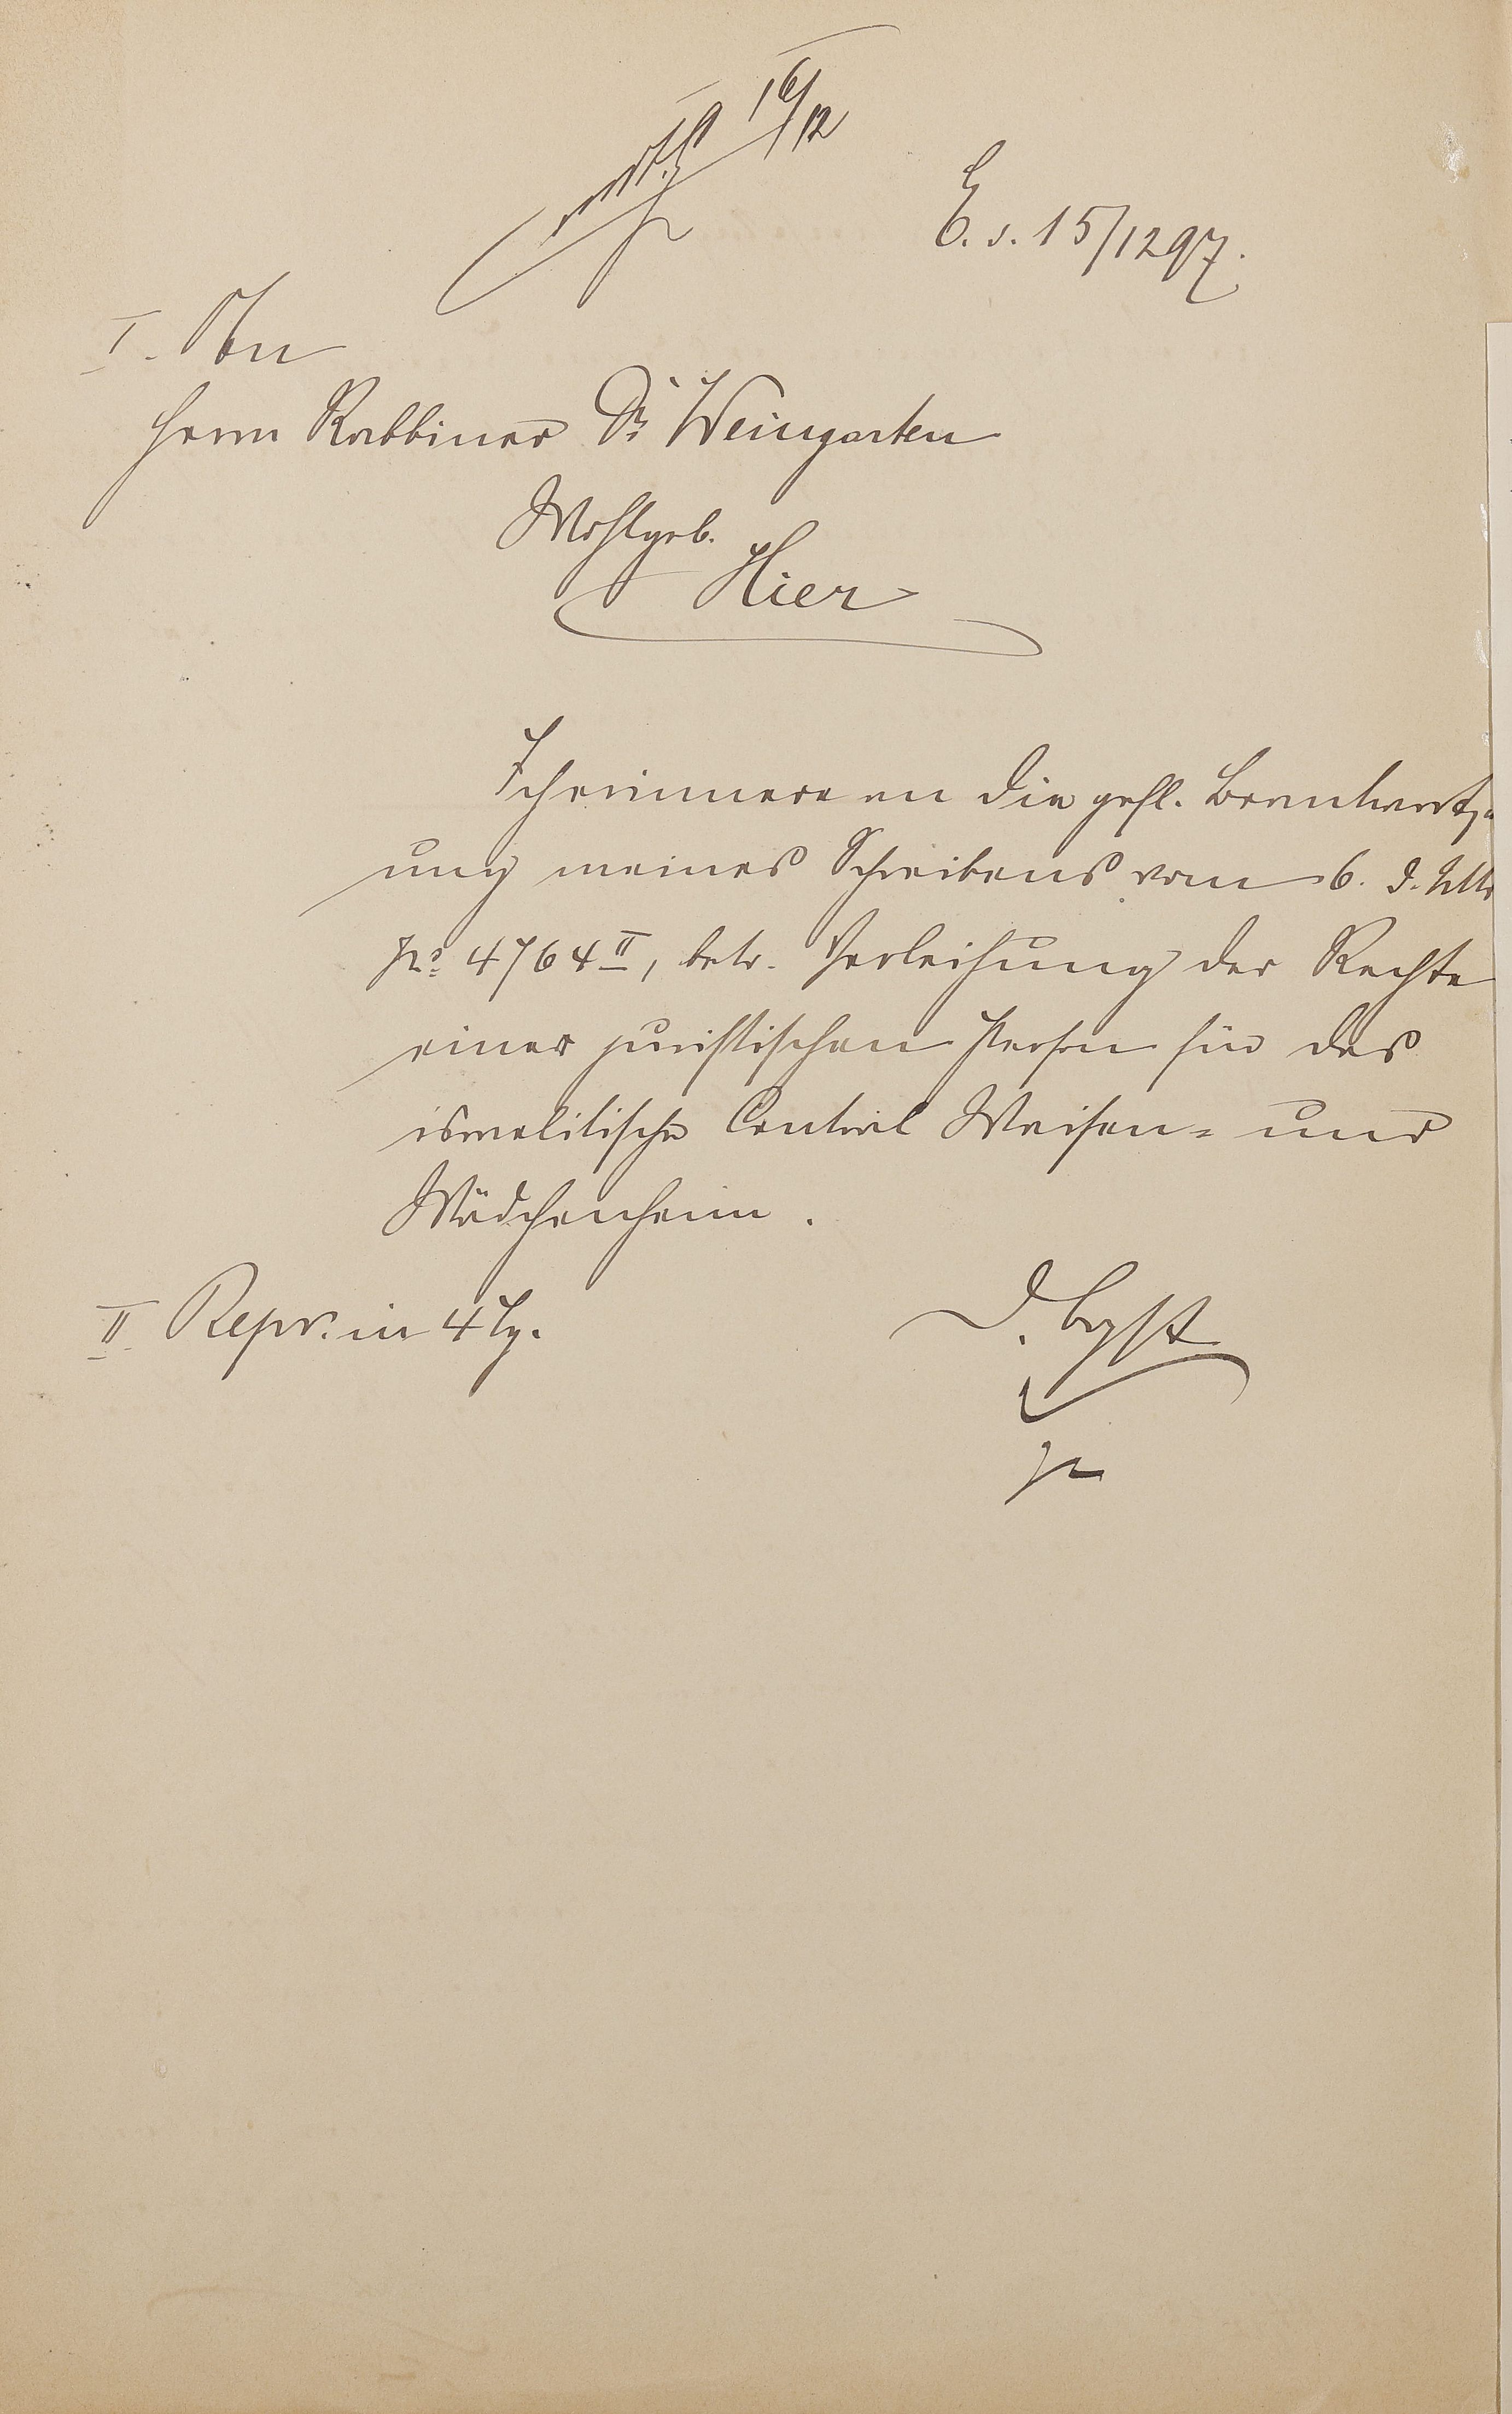 16/12
E. d. 15/12 97.
I. An
Herrn Rabbiner Dr. Weingarten
Wohlgeb.
Hier
Ich erinnere an die gefl. Beantwort=
ung meines Schreibens vom 6. d. Mts
No. 4764 II, betr. Verleihung der Rechte
einer juristischen Person für das
israelitische Central Waisen- und
Mädchenheim.
II Repr. in 4 Tg.